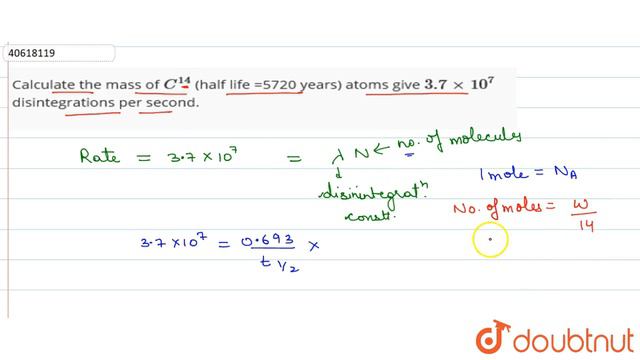 40618119
Calculate the mass of C¹⁴ (half life =5720 years) atoms give 3.7 × 10⁷
disintegrations per second.
Rate = 3.7 × 10⁷ = λ N ← no. of molecules
disinintegratⁿ.
const.
1 mole = N_A
No. of moles = w/14
3.7 × 10⁷ = 0.693/t 1/2 ×
doubtnut